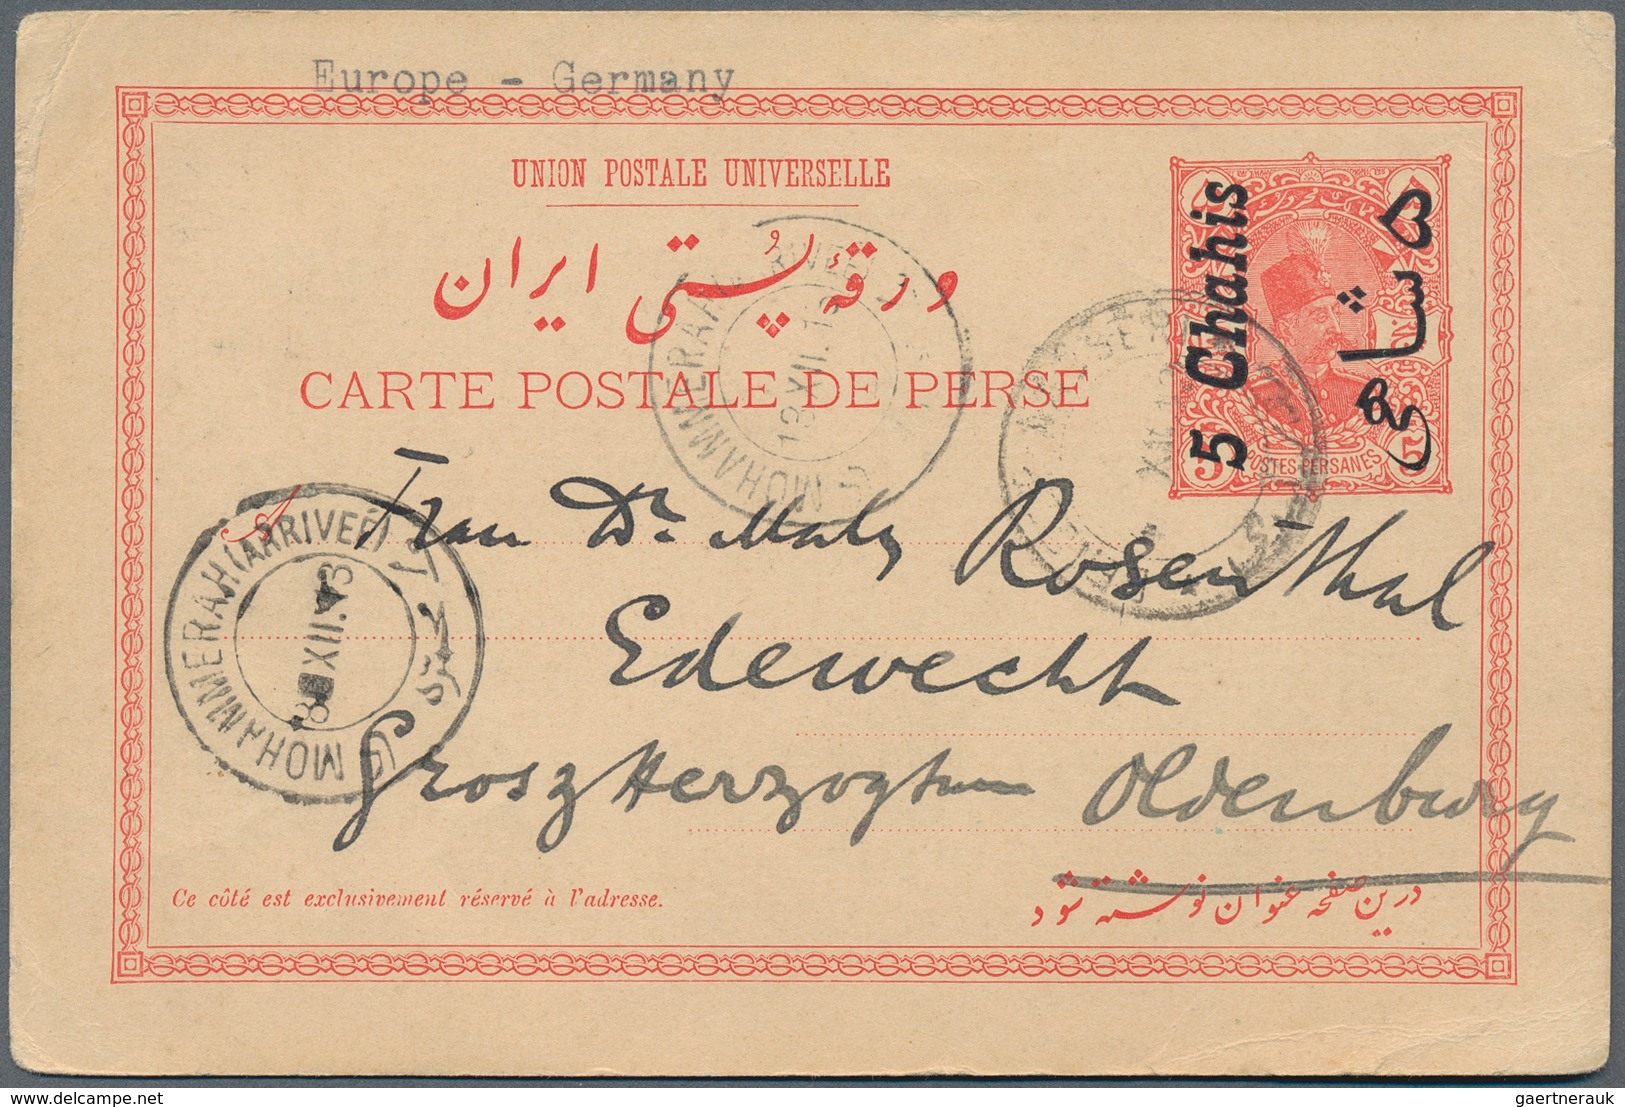 Europe - Germany
UNION POSTALE UNIVERSELLE
ورقهٔ پستی ایران
CARTE POSTALE DE PERSE
5 Chahis
۵ شاهی
5
5
POSTES PERSANES
MOHAMMERAH (ARRIVEE)
13 XII. 13
A Frau Dr. Rosenthal
Edewecht
Groszherzogtum Oldenburg
MOHAMMERAH (ARRIVEÉ)
XII. 13
Ce côté est exclusivement réservé à l'adresse.
درین صفحه عنوان نوشته شود
gaertnerauk